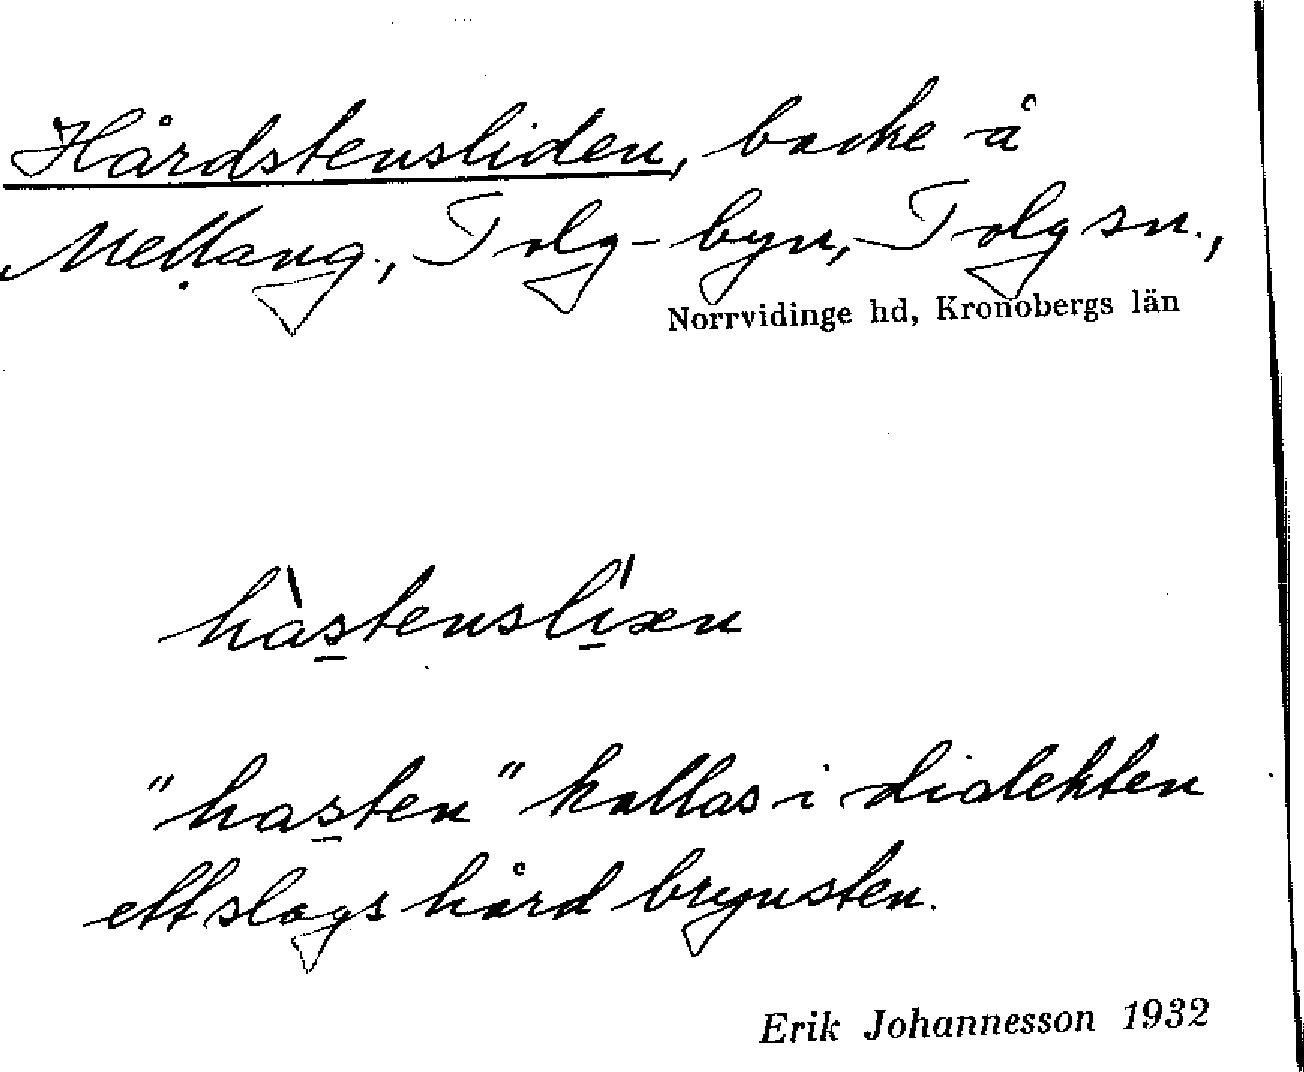 Hårdstensliden, backe å
Mellang., Tolg-byn, Tolg sn.,
Norrvidinge hd, Kronobergs län
hàs̲tensĺi̲xen
"has̲ten" kallas i dialekten
ett slags hård brynsten.
Erik Johannesson 1932